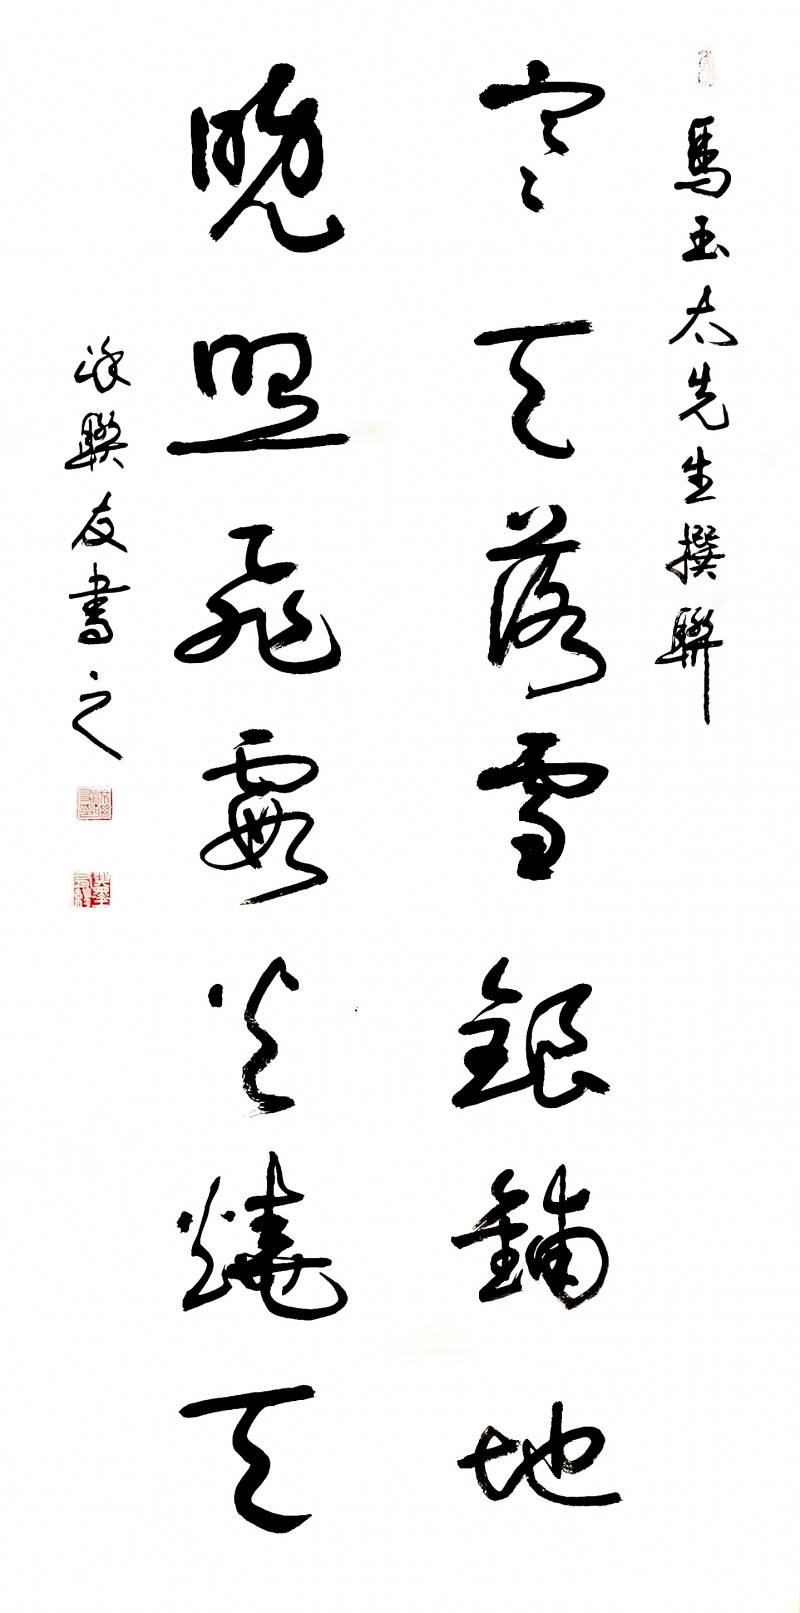 馬玉太先生撰聯
寒天落雪銀鋪地
晚照飛霞火燒天
徐聯友書之